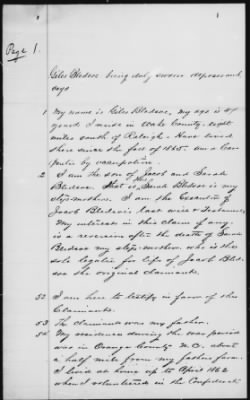 1
Page 1.
Giles Bledsoe being duly sworn deposes and
says
1 My name is Giles Bledsoe, my age is 47
years I reside in Wake County eight
miles south of Raleigh. Have lived
there since the fall of 1865. am a Car-
penter by occupation.
2 I am the son of Jacob and Sarah
Bledsoe. That is, Sarah Bledsoe is my
step-mother. I am the Executor of
Jacob Bledsoe's Last will & Testament,
My interest in this claim if any
is a reversion after the death of Sarah
Bledsoe my step-mother. who is the
sole legatee for life of Jacob Bled-
soe the original claimant.
52 I am here to testify in favor of the
Claimants.
53 The claimant was my father.
54 My residence during the war period
was in Orange County N.C. about
a half mile from my father's farm.
I lived at home up to April 1862
when I volunteered in the Confederate